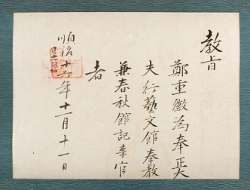 教旨
鄭重徽為奉正大
夫行藝文館奉教
兼春秋館記事官
者
順治十六年十一月十一日